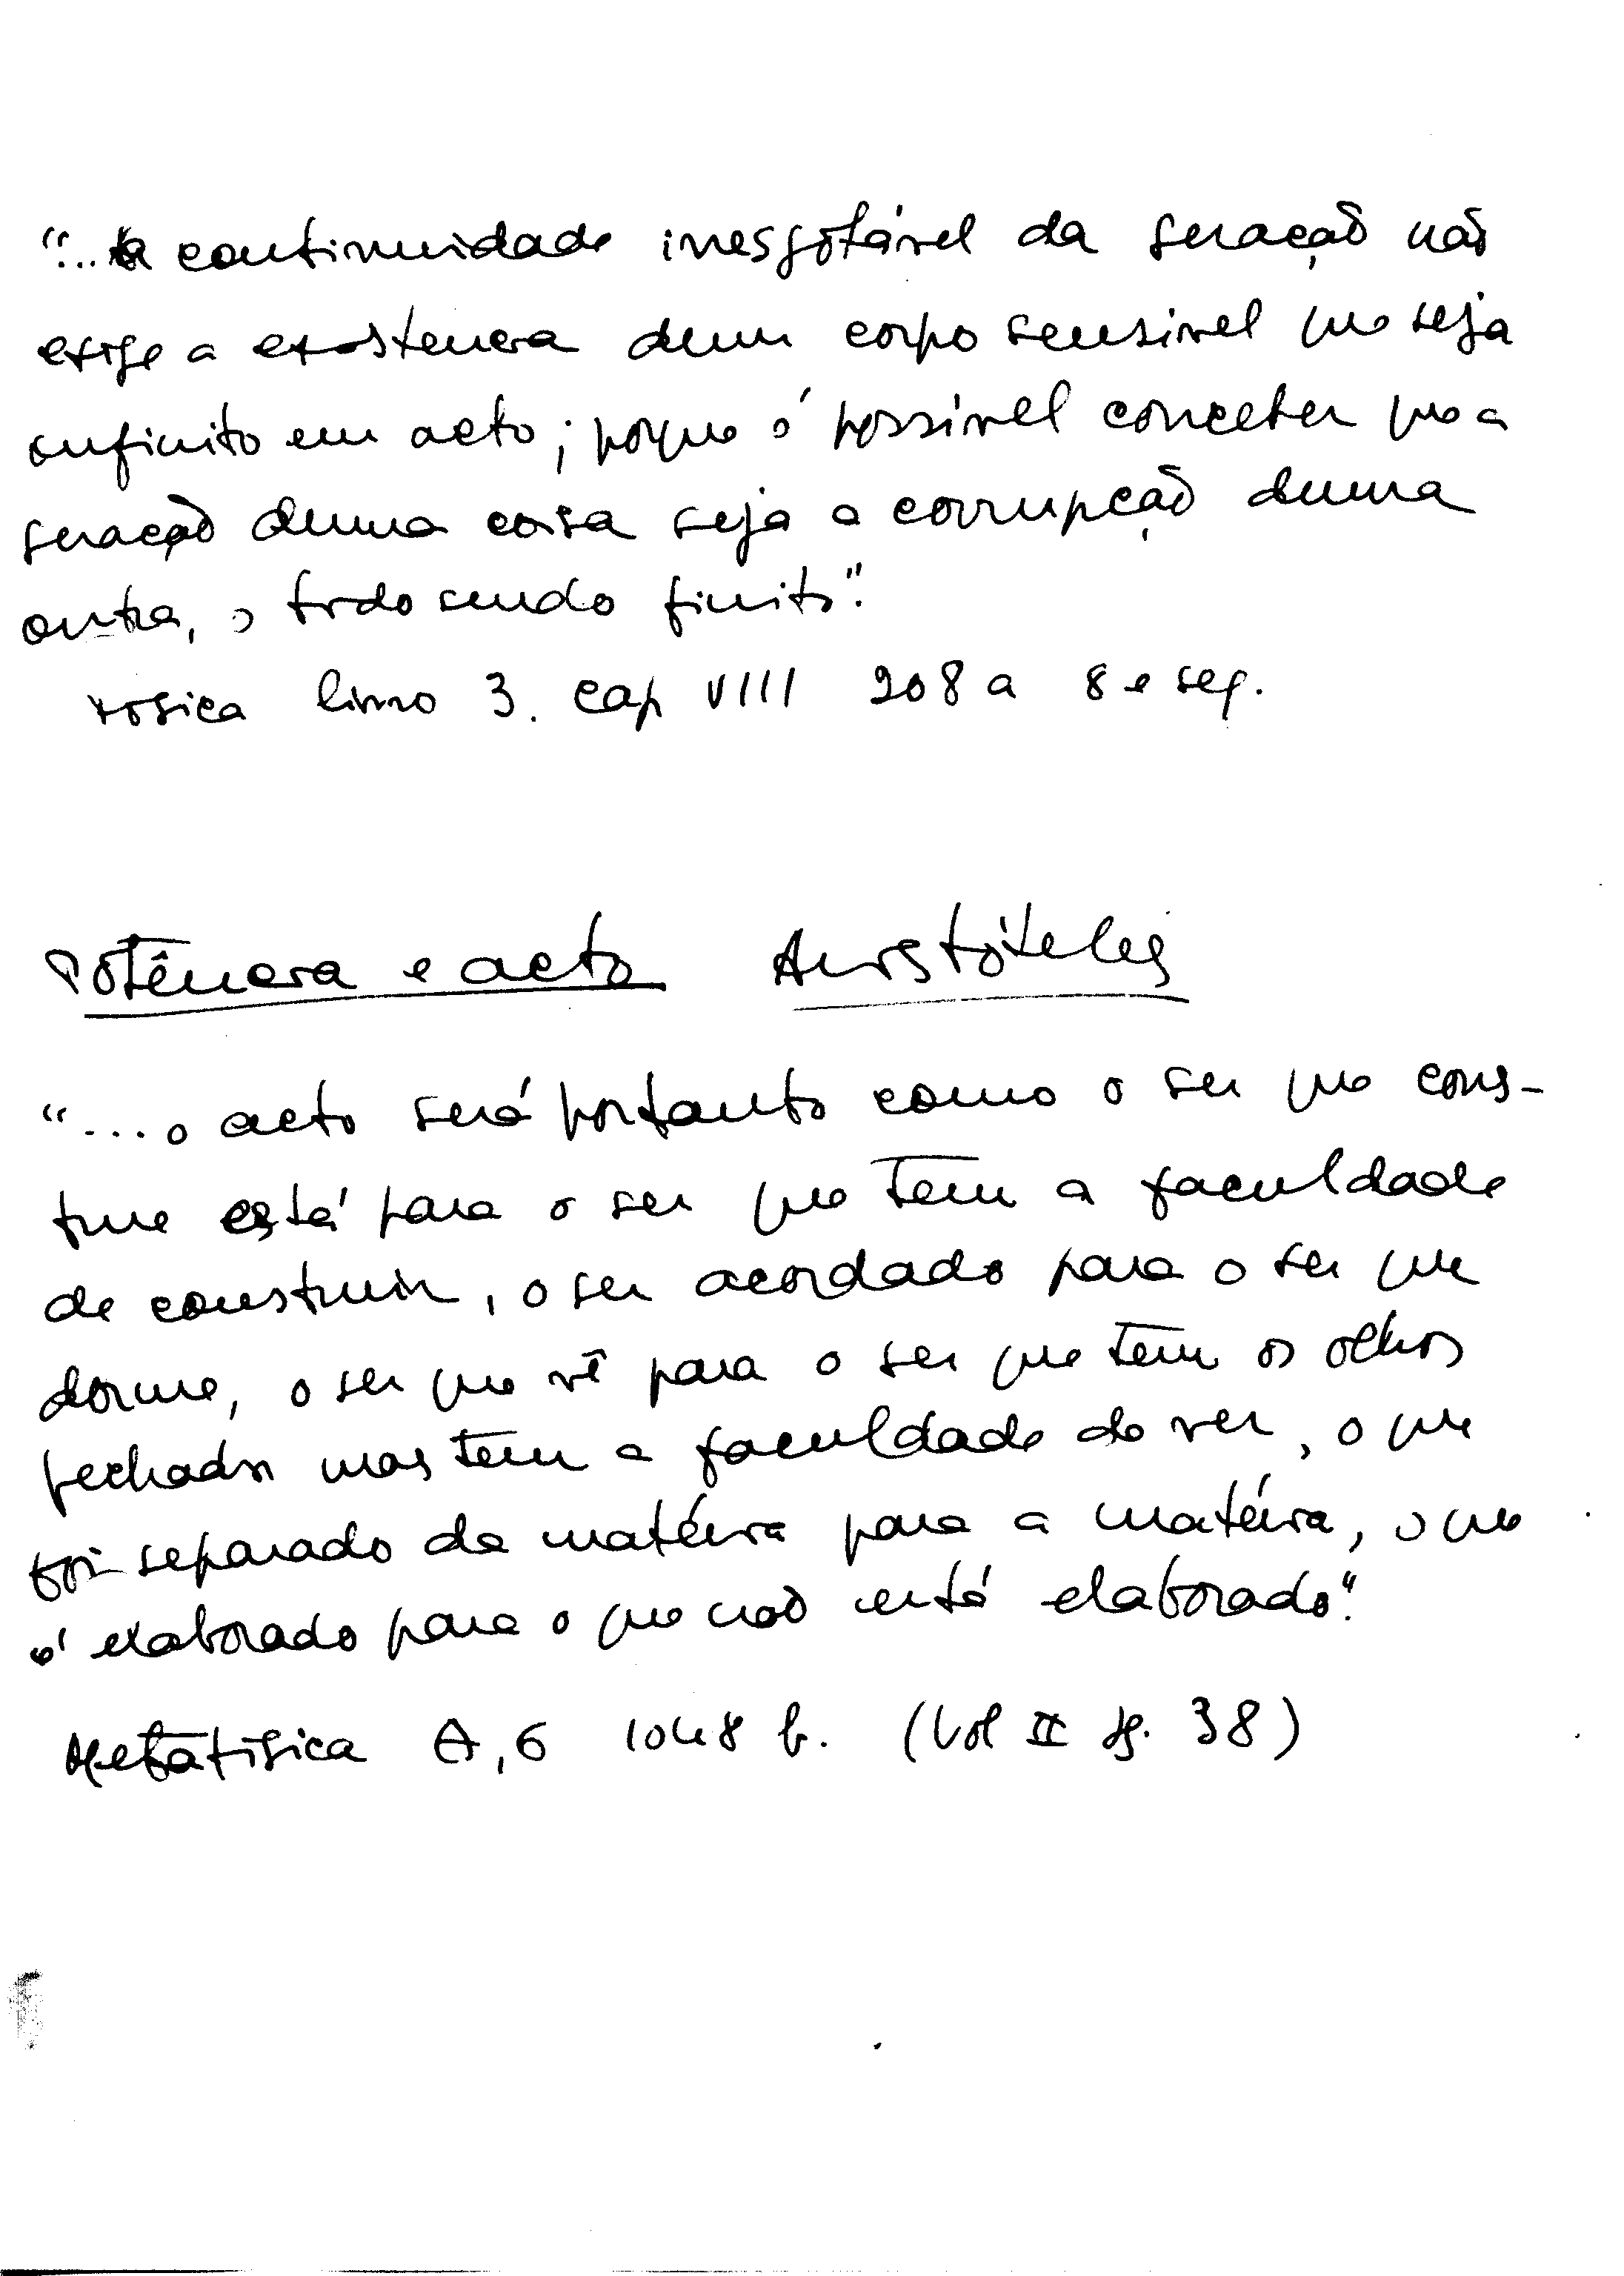 "...a continuidade inesgotável da geração não
exige a existencia dum corpo sensivel que seja
infinito em acto; porque é possivel conceber que a
geração duma coisa seja a corrupção duma
outra, o todo sendo finito".
Fisica livro 3. cap VIII 208 a 8 e seg.
Potência e acto Aristóteles
"...o acto será portanto como o ser que cons-
true está para o ser que tem a faculdade
de construir, o ser acordado para o ser que
dorme, o ser que vê para o ser que tem os olhos
fechados mas tem a faculdade de ver, o que
foi separado da matéria para a matéria, o que
é elaborado para o que não está elaborado".
Metafisica Θ, 6 1048 b. (Vol II pg. 38)